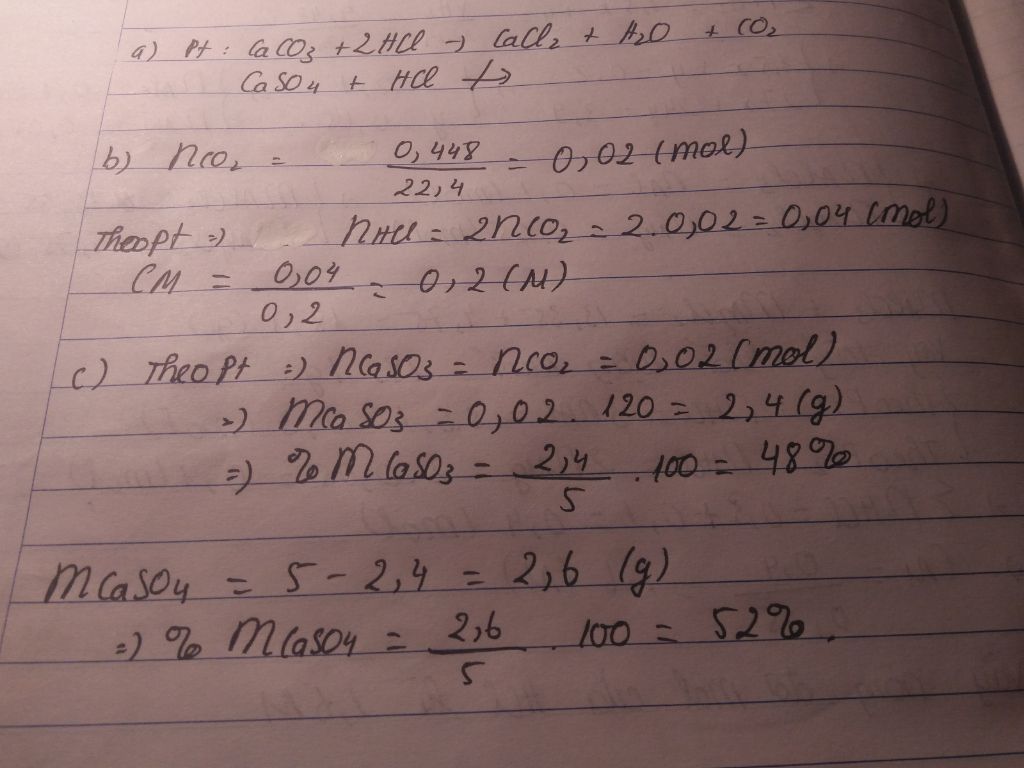 a) Pt : CaCO3 + 2HCl → CaCl2 + H2O + CO2
CaSO4 + HCl ↛
b) nCO2 = 0,448 / 22,4 = 0,02 (mol)
Theo pt => nHCl = 2nCO2 = 2.0,02 = 0,04 (mol)
CM = 0,04 / 0,2 = 0,2 (M)
c) Theo pt => nCaSO3 = nCO2 = 0,02 (mol)
=> mCaSO3 = 0,02 . 120 = 2,4 (g)
=> % mCaSO3 = 2,4 / 5 . 100 = 48%
mCaSO4 = 5 - 2,4 = 2,6 (g)
=> % mCaSO4 = 2,6 / 5 . 100 = 52%.